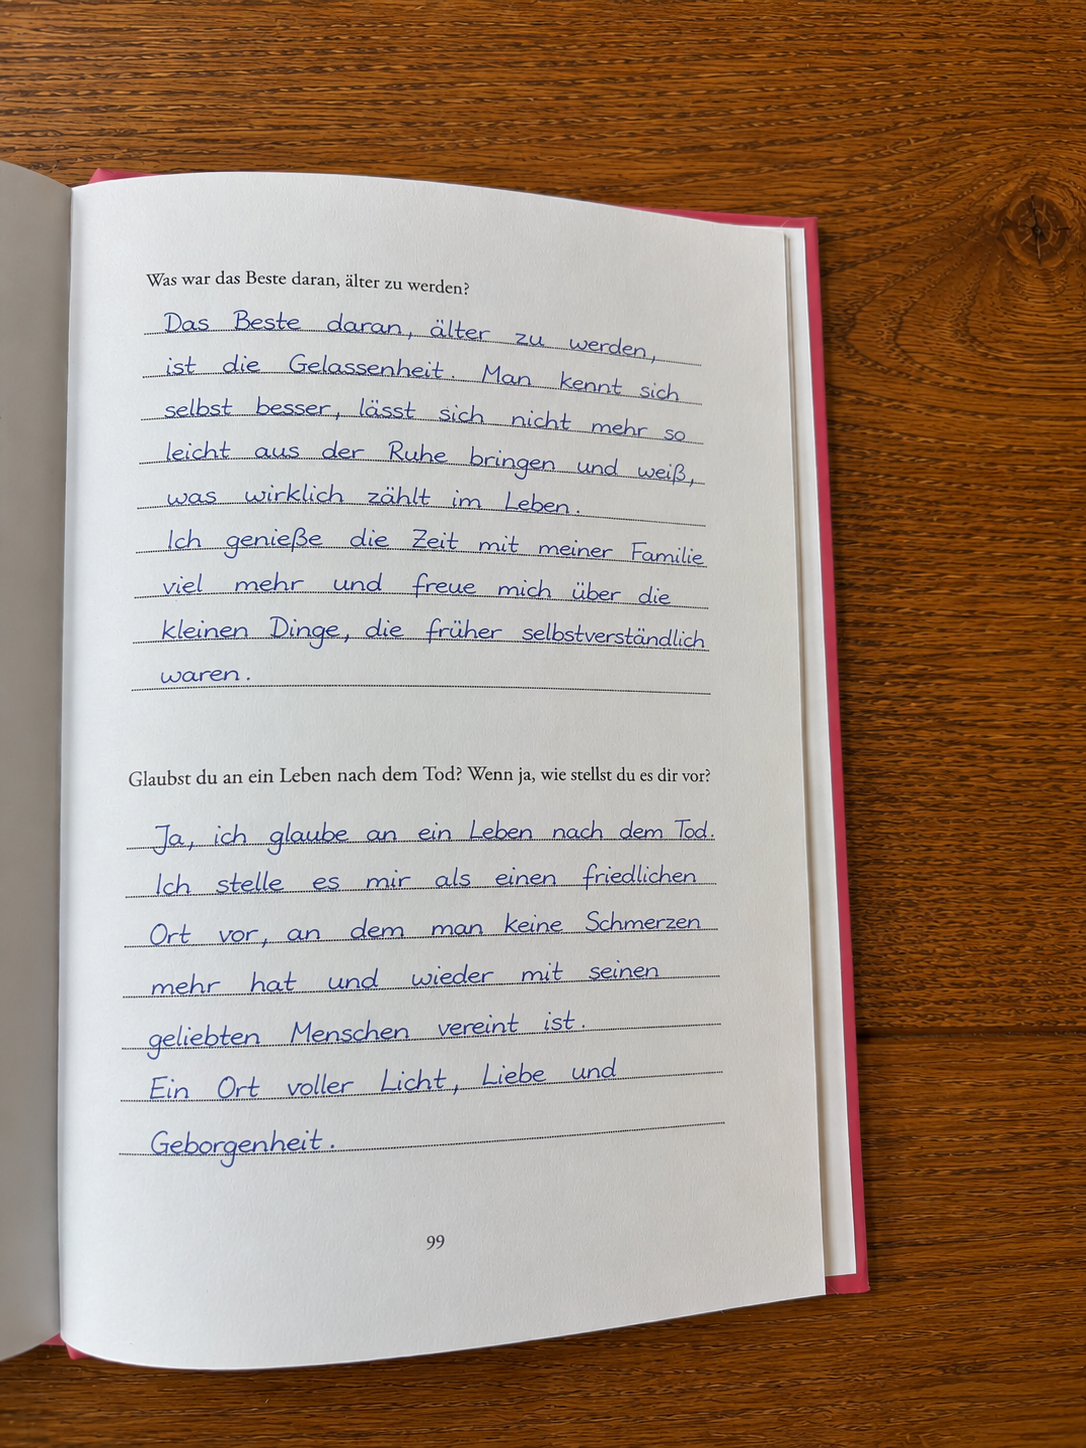 Was war das Beste daran, älter zu werden?
Das Beste daran, älter zu werden,
ist die Gelassenheit. Man kennt sich
selbst besser, lässt sich nicht mehr so
leicht aus der Ruhe bringen und weiß,
was wirklich zählt im Leben.
Ich genieße die Zeit mit meiner Familie
viel mehr und freue mich über die
kleinen Dinge, die früher selbstverständlich
waren.
Glaubst du an ein Leben nach dem Tod? Wenn ja, wie stellst du es dir vor?
Ja, ich glaube an ein Leben nach dem Tod.
Ich stelle es mir als einen friedlichen
Ort vor, an dem man keine Schmerzen
mehr hat und wieder mit seinen
geliebten Menschen vereint ist.
Ein Ort voller Licht, Liebe und
Geborgenheit.
99